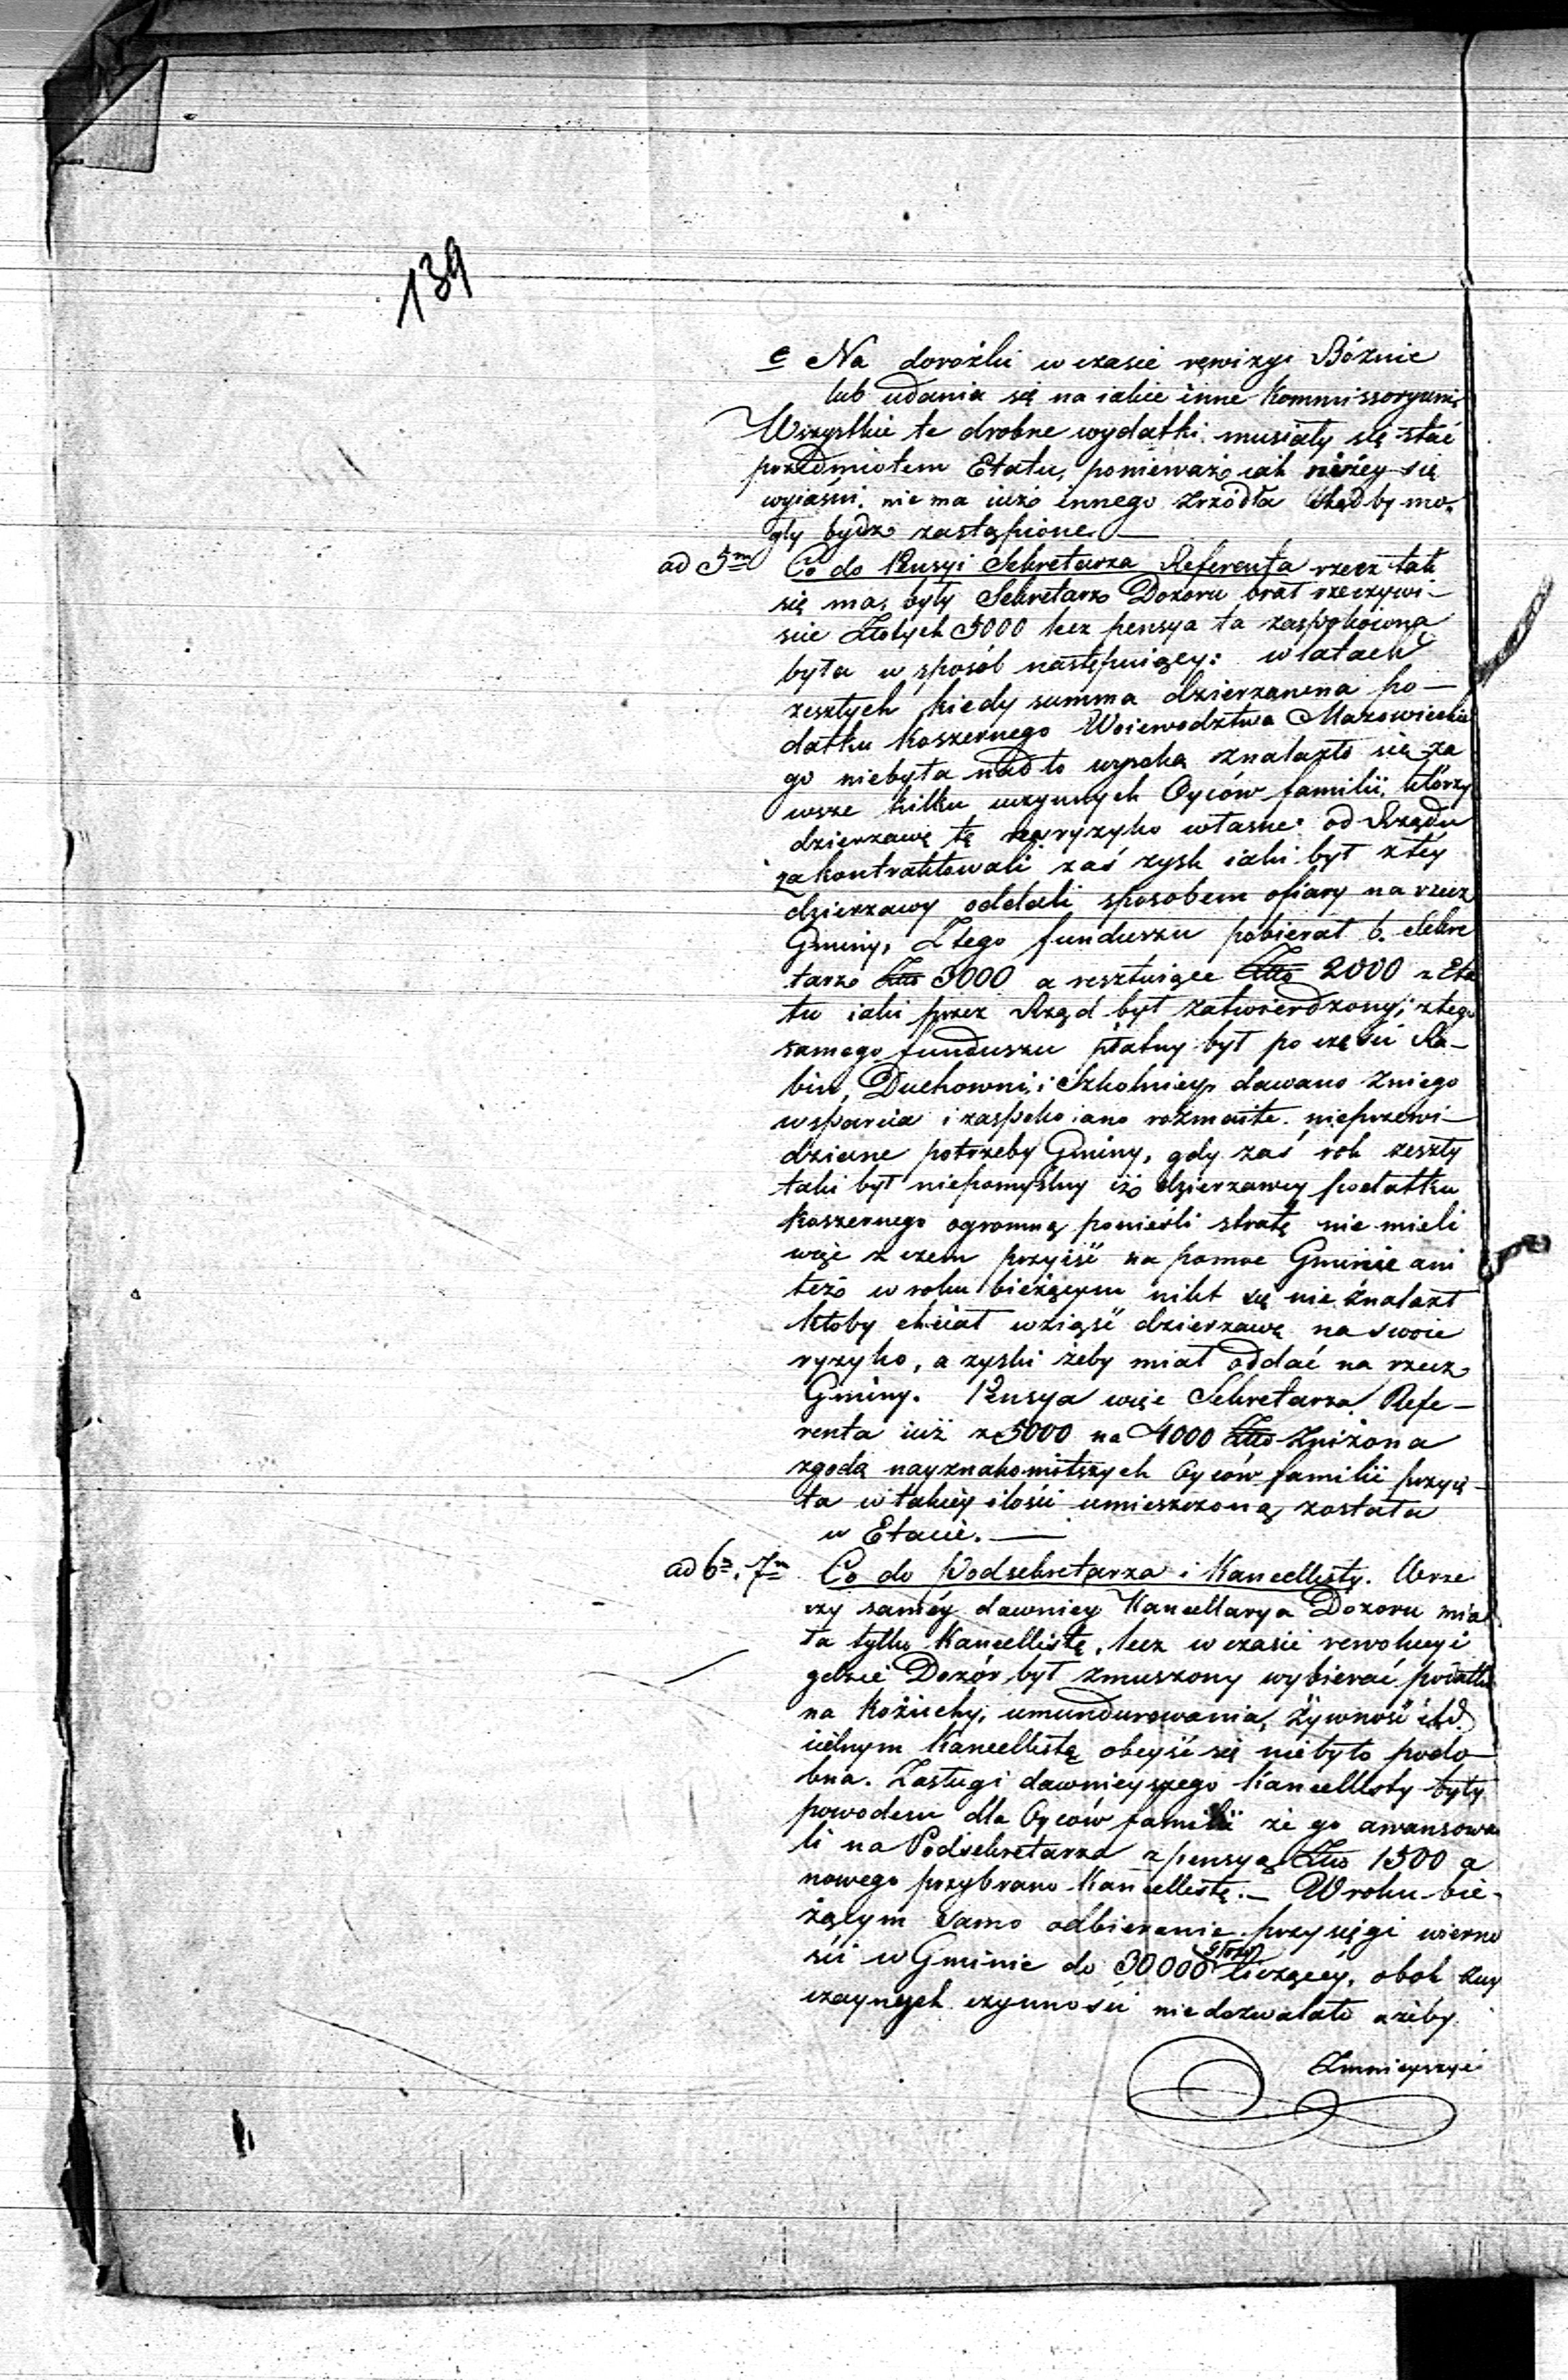 139
e Na dorożki w czasie rewizyi Bóżnic
lub udania się na iakie inne Kommissoryum
Wszystkie te drobne wydatki musiały się stać
przedmiotem Etatu, ponieważ iak niżey się
wyiaśni, nie ma iuż innego zrzódła skądby mo-
gły bydź zastąpione. —
ad 5m Co do Pensyi Sekretarza Referenta rzecz tak
się ma, były Sekretarz Dozoru brał rzeczywi-
ście Złotych 5000 lecz pensya ta zaspokoiona
była w sposób następuiący: w latach
zeszłych kiedy summa dzierzawna po-
datku koszernego Woiewodztwa Mazowieckie
go niebyła nadto wysoka znalazło się za
wsze kilku uczynnych Oyców familii, którzy
dzierzawę tę na ryzyko własne od Rządu
zakontraktowali zaś zysk iaki był z tey
dzierzawy oddali sposobem ofiary na rzecz
Gminy, Z tego funduszu pobierał b. Sekre
tarz Złło 3000 a resztuiące Złło 2000 z Eta
tu iaki przez Rząd był zatwierdzony; z tego
samego funduszu płatny był po części Ra-
bin, Duchowni i Szkolnicy, dawano z niego
wsparcia i zaspokoiano rozmaite nieprzewi-
dziane potrzeby Gminy, gdy zaś rok zeszły
taki był niepomyślny iż dzierzawcy podatku
koszernego ogromną ponieśli stratę nie mieli
więc z czem przyiść na pomoc Gminie ani
też w roku bieżącym nikt się nie znalazł
któby chciał wziąść dzierzawę na swoie
ryzyko, a zyski żeby miał oddać na rzecz
Gminy. Pensya więc Sekretarza Refe-
renta iuż z 5000 na 4000 Złło zniżona
zgodą nayznakomitszych Oyców familii przyię-
ta w takiey ilości umieszczoną została
w Etacie. —
ad 6m i 7m Co do Podsekretarza i Kancellisty. W rze
czy saméy dawniey Kancellarya Dozoru mia
ła tylko Kancellistę, lecz w czasie rewolucyi
gdzie Dozór był zmuszony wybierać podatki
na kożuchy, umundurowania, żywność i t.d.
iednym Kancellistą obeyść się niebyło podo-
bna. Zasługi dawnieyszego Kancellisty były
powodem dla Oyców familii że go awansowa
li na Podsekretarza z pensyą Złło 1500 a
nowego przybrano Kancellistę. — W roku bie-
żącym samo odbieranie przysięgi wierno
ści w Gminie do 30000 głów liczącey, obok zwy
czaynych czynności niedozwalało ażeby
Zmnieyszyć